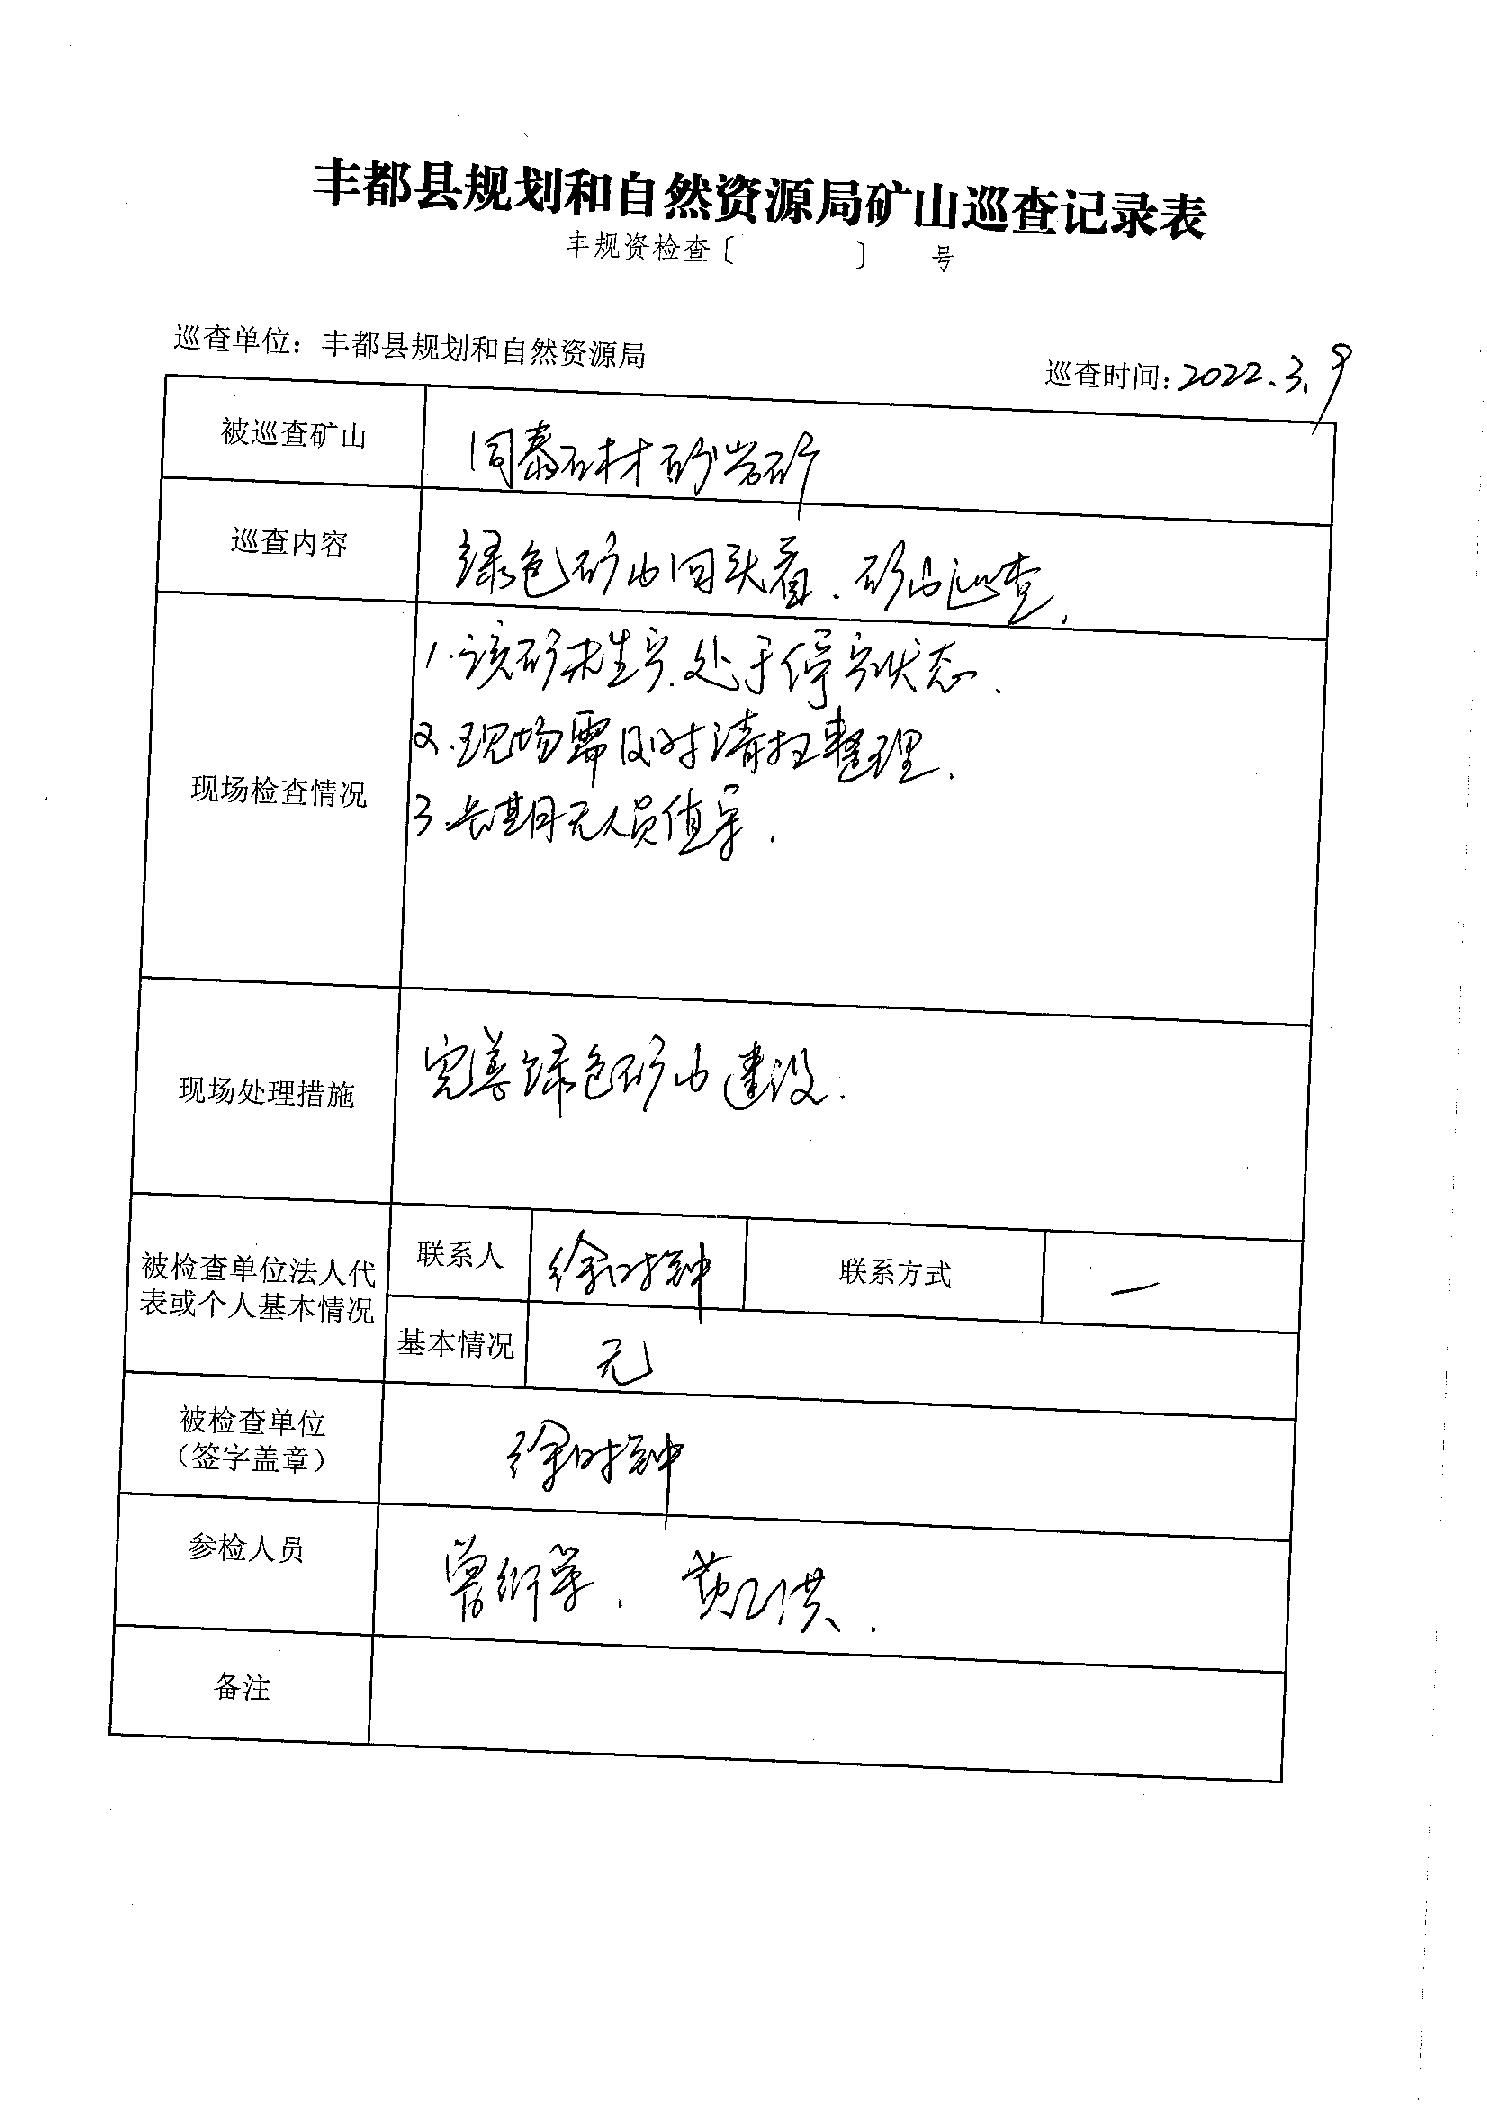 丰都县规划和自然资源局矿山巡查记录表
丰规资检查〔 〕 号
巡查单位：丰都县规划和自然资源局
巡查时间：2022.3.9
被巡查矿山
同泰石材砂岩矿
巡查内容
绿色矿山回头看、矿山巡查.
现场检查情况
1.该矿未生产.处于停产状态.
2.现场需及时清扫整理.
3.长期无人员值守.
现场处理措施
完善绿色矿山建设.
被检查单位法人代
表或个人基本情况
联系人
徐时钟
联系方式
一
基本情况
无
被检查单位
（签字盖章）
徐时钟
参检人员
备注